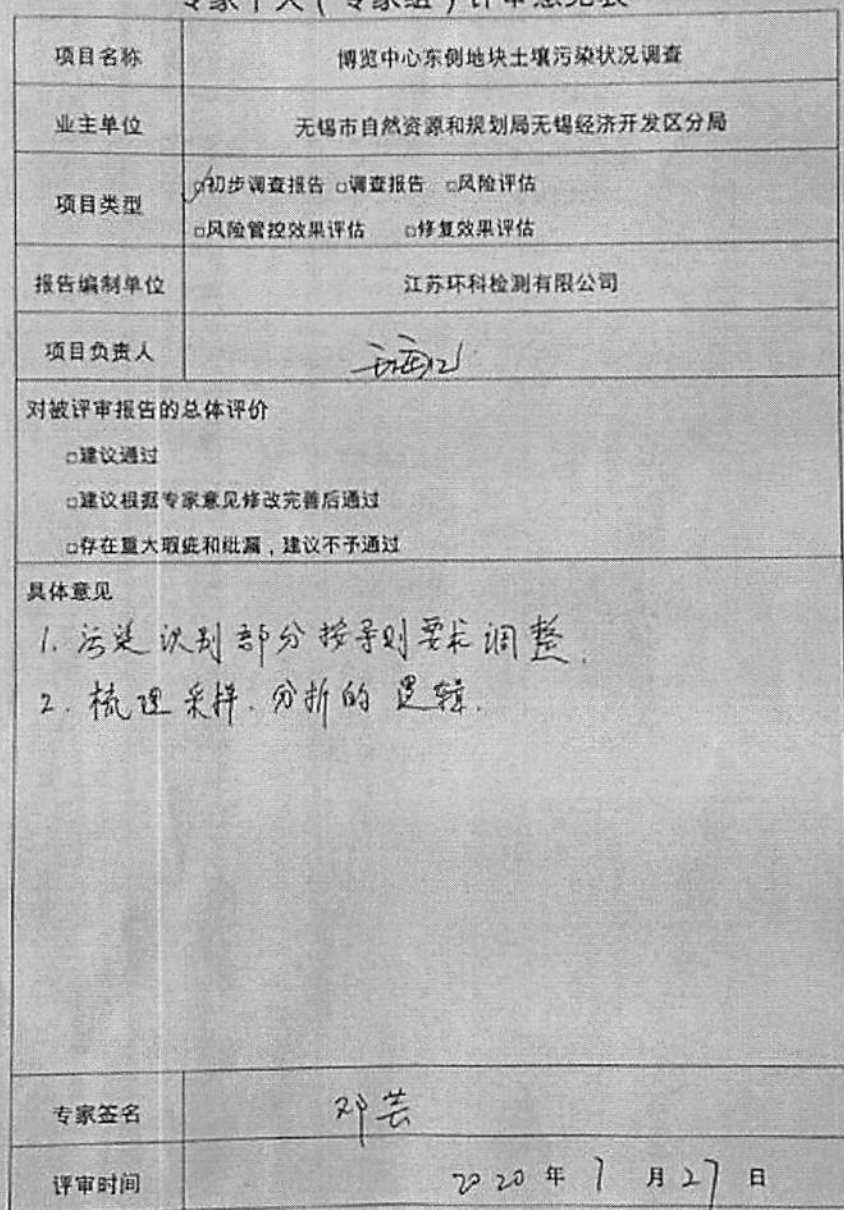 专家个人（专家组）评审意见表
项目名称 博览中心东侧地块土壤污染状况调查
业主单位 无锡市自然资源和规划局无锡经济开发区分局
项目类型 ☑初步调查报告 □调查报告 □风险评估
□风险管控效果评估 □修复效果评估
报告编制单位 江苏环科检测有限公司
项目负责人
对被评审报告的总体评价
□建议通过
□建议根据专家意见修改完善后通过
□存在重大瑕疵和纰漏，建议不予通过
具体意见
1. 污染识别部分按导则要求调整.
2. 梳理采样、分析的逻辑.
专家签名 邓芸
评审时间 2020年7月27日